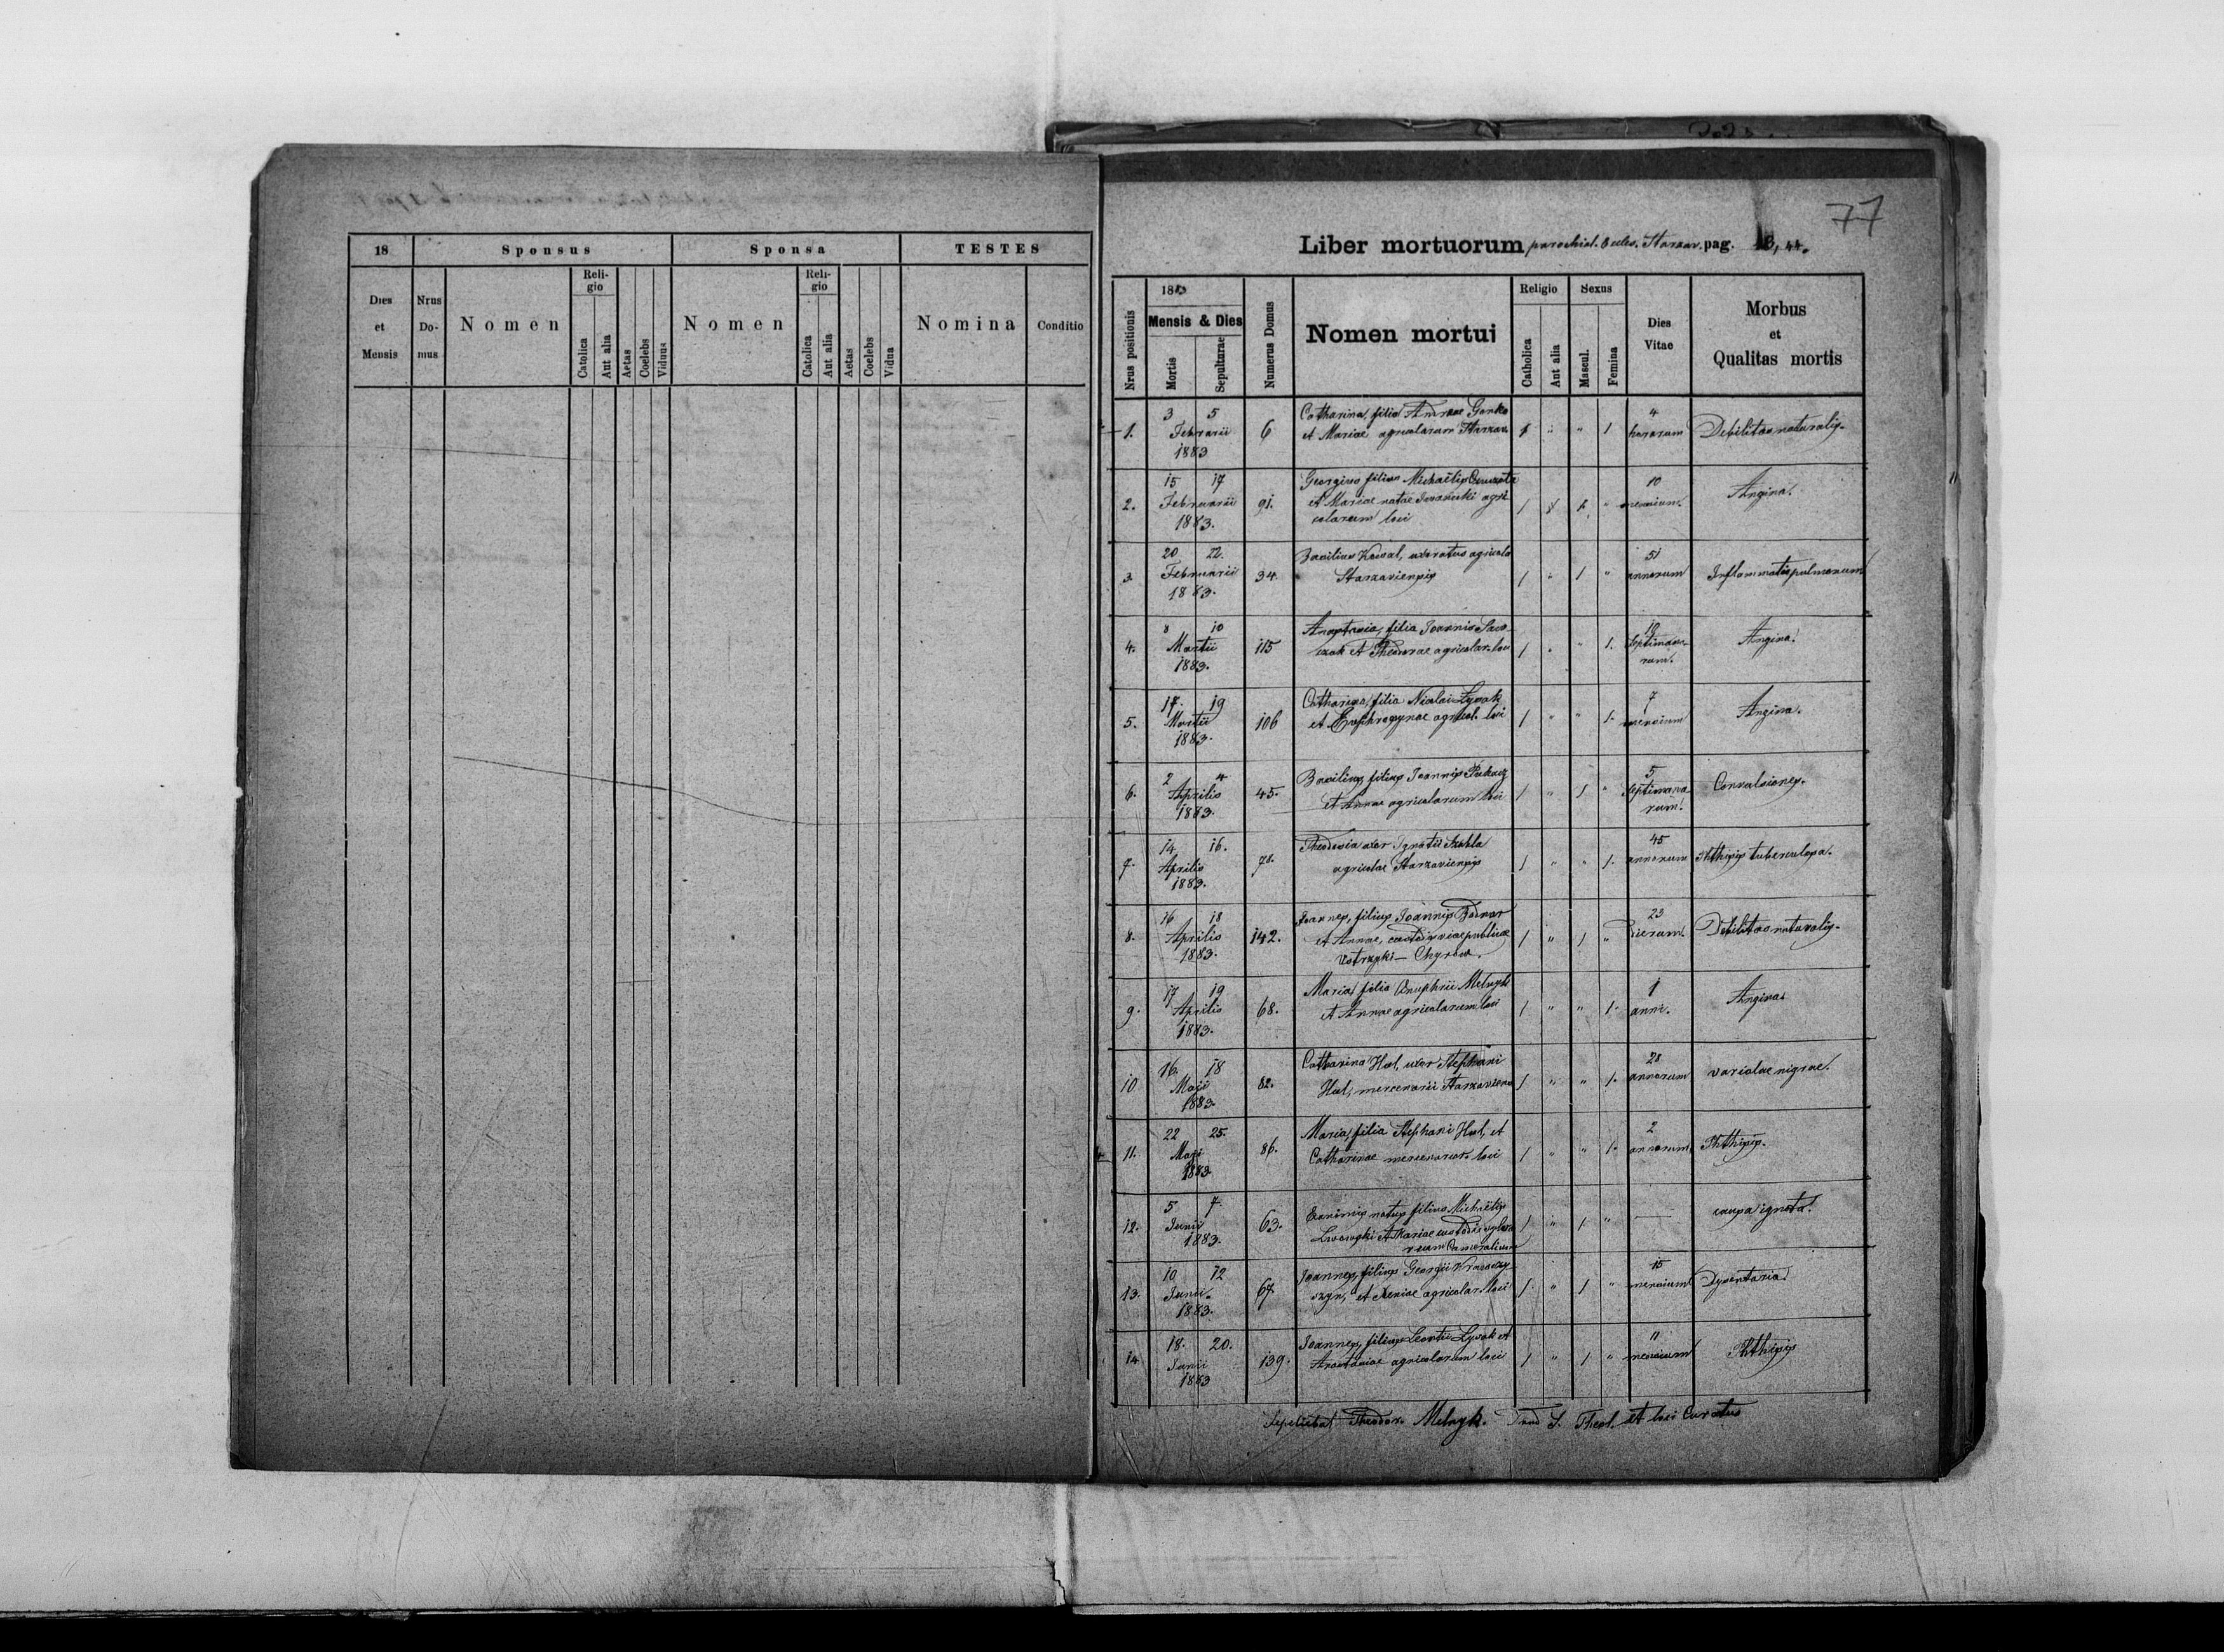 18 Sponsus Sponsa TESTES
Dies et Mensis
Nrus Domus
Nomen
Religio
Catolica
Aut alia
Aetas
Coelebs
Viduus
Nomen
Religio
Catolica
Aut alia
Aetas
Coelebs
Vidua
Nomina
Conditio
77
Liber mortuorum parochial. Eccles. Starzav. pag. 43, 44.
Nrus positionis
1883
Mensis & Dies
Mortis
Sepulturae
Numerus Domus
Nomen mortui
Religio
Catholica
Aut alia
Sexus
Mascul.
Femina
Dies Vitae
Morbus
et
Qualitas mortis
3 5 Catharina, filia Andreae 4
1. Februarii 6 et Mariae agricolarum Starzav. 1 " " 1 horarum Debilitas naturalis.
1883
15 17 Georgius filius Michaëlis 10
2. Februarii 91. et Mariae natae Iwanicki agri mensium. Angina.
1883. colarum loci
20 22. Basilius Kowal, uxoratus agricola 51
3. Februarii 34. Starzaviensis 1 " 1 " annorum Inflammatio pulmonum
1883.
8 10 Anastasia, filia Joannis 10
4. Martii 115 et Theodorae agricolar. loci 1 " " 1. septimana- Angina.
1883. rum.
17. 19 Catharina, filia Nicolai Lysak 7
5. Martii 106 et Euphrosynae agricol. loci 1 " " 1. mensium Angina.
1883.
2 4 Basilius, filius Joannis 5
6. Aprilis 45. et Annae agricolarum loci 1 " 1 " septimana Convulsiones.
1883. rum.
14 16. Theodosia uxor Ignatii 45
7. Aprilis 78. agricolae Starzaviensis 1 " " 1. annorum Phthisis tuberculosa.
1883.
16 18 Joannes, filius Joannis Bodnar 23
8. Aprilis 142. et Annae, custodis viae publicae 1 " 1 " dierum. Debilitas naturalis.
1883. Ustrzyki — Chyrów.
17 19 Maria, filia Onuphrii Melnyk 1
9. Aprilis 68. et Annae agricolarum loci 1 " " 1. anni. Angina.
1883.
16. 18 Catharina Hul, uxor Stephani 28
10 Maji 82. Hul, mercenarii Starzaviens 1 " " 1. annorum variolae nigrae.
1883.
22 25. Maria, filia Stephani Hul, et 2
11. Maji 86. Catharinae mercenarior. loci 1 " " 1. annorum Phthisis.
1883
5 7. Exanimis natus filius Michaëlis
12. Junii 63. Lwowski et Mariae custodis sylva 1 " 1 " — causa ignota.
1883. rum Cameralium
10 12 Joannes, filius Georgii 15
13. Junii. 67. et Xeniae agricolar. loci 1 " 1 " mensium Dysenteria.
1883.
18. 20. Joannes, filius Leontii Lysak et 11
14 Junii 139. Anastasiae agricolarum loci 1 " 1 " mensium Phthisis
1883
Sepelivit Theodor. Melnyk. S. Theol. et loci Curatus